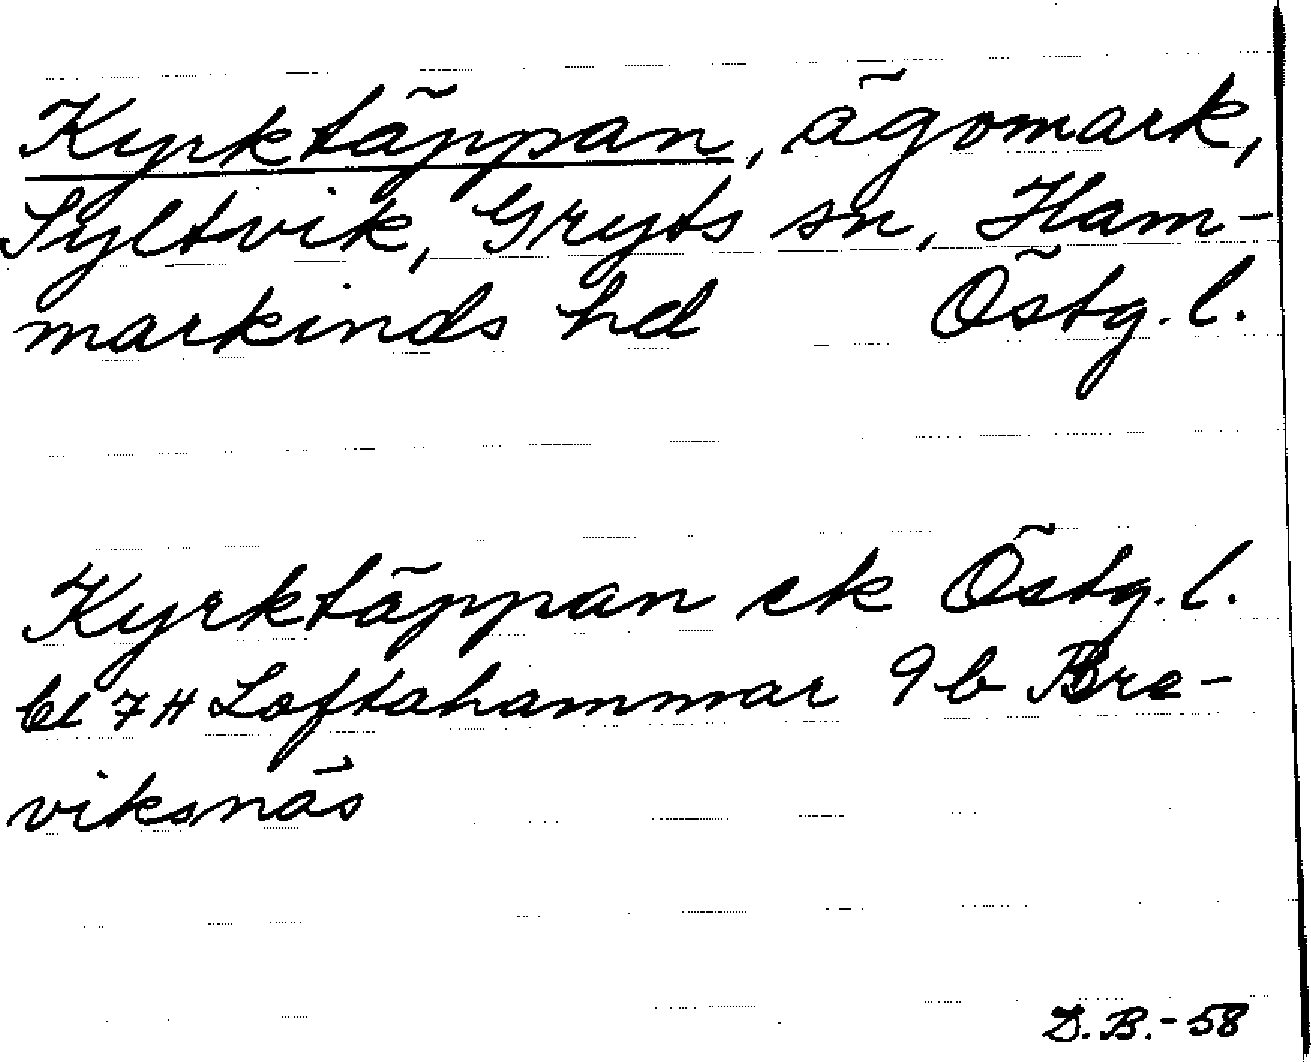 Kyrktäppan, ägomark,
Syltvik, Gryts sn, Ham-
markinds hd Östg. l.
Kyrktäppan ek Östg. l.
bl 7H Loftahammar 9b Bre-
viksnäs
D.B.-58